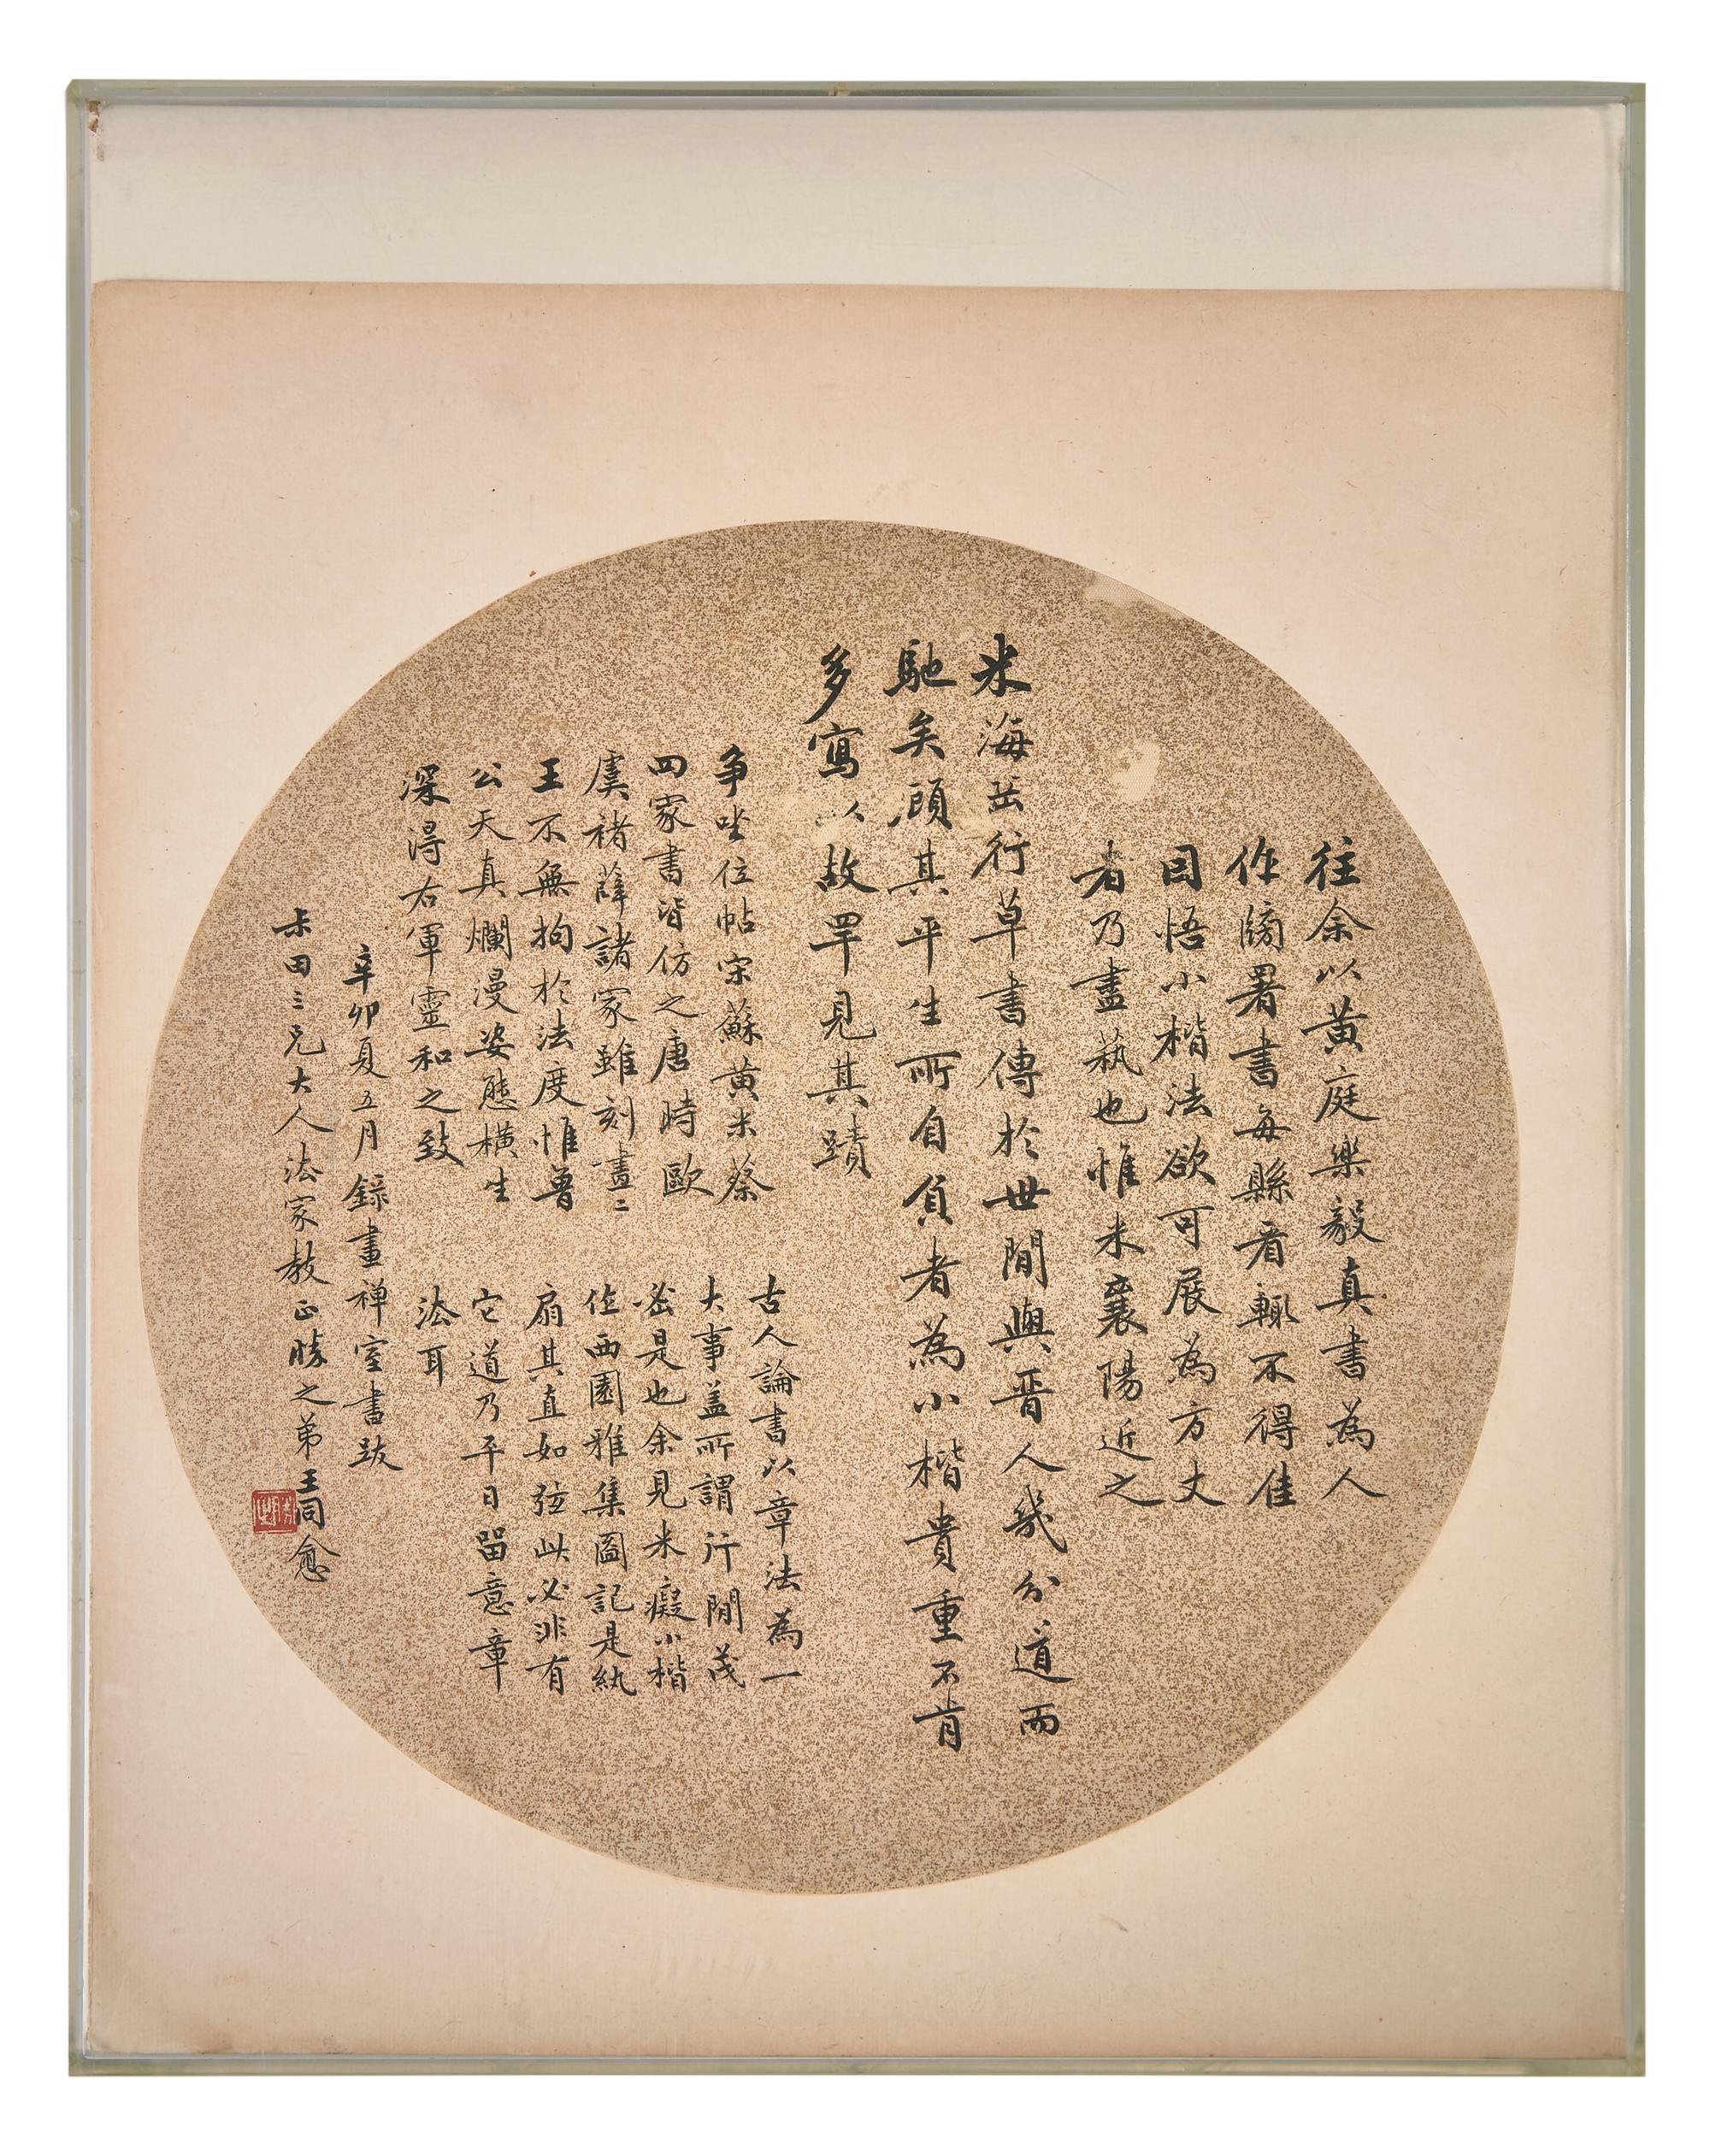 往余以黃庭樂毅真書為人
作牓署書每縣看輒不得佳
因悟小楷法欲可展為方丈
者乃盡萟也惟米襄陽近之
米海岳行草書傳於世間與晉人幾分道而
馳矣顧其平生所自負者為小楷貴重不肯
多寫以故罕見其蹟
爭坐位帖宋蘇黃米蔡
四家書皆仿之唐時歐
虞褚薛諸家雖刻畫二
王不無拘於法度惟魯
公天真爛漫姿態橫生
深得右軍靈和之致
古人論書以章法為一
大事蓋所謂行間茂
密是也余見米癡小楷
作西園雅集圖記是紈
扇其直如弦此必非有
它道乃平日留意章
法耳
辛卯夏五月錄畫禪室書跋
尗田三兄大人法家教正勝之弟王同愈
勝之